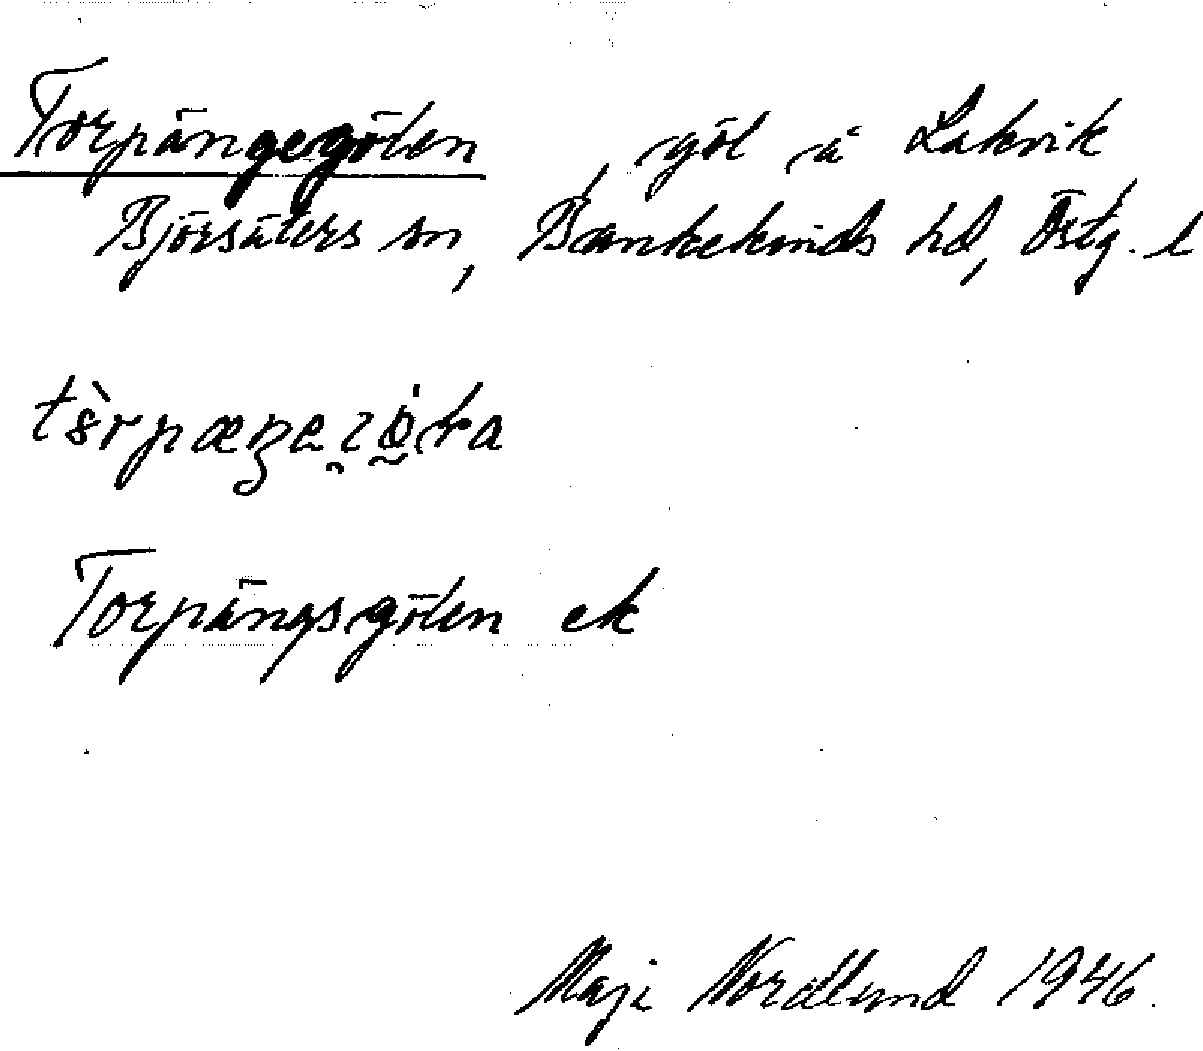 Torpängegölen, göl å Lakvik,
Björsäters sn, Bankekinds hd, Östg. l
Torpängsgölen ek
Maji Nordlund 1946.